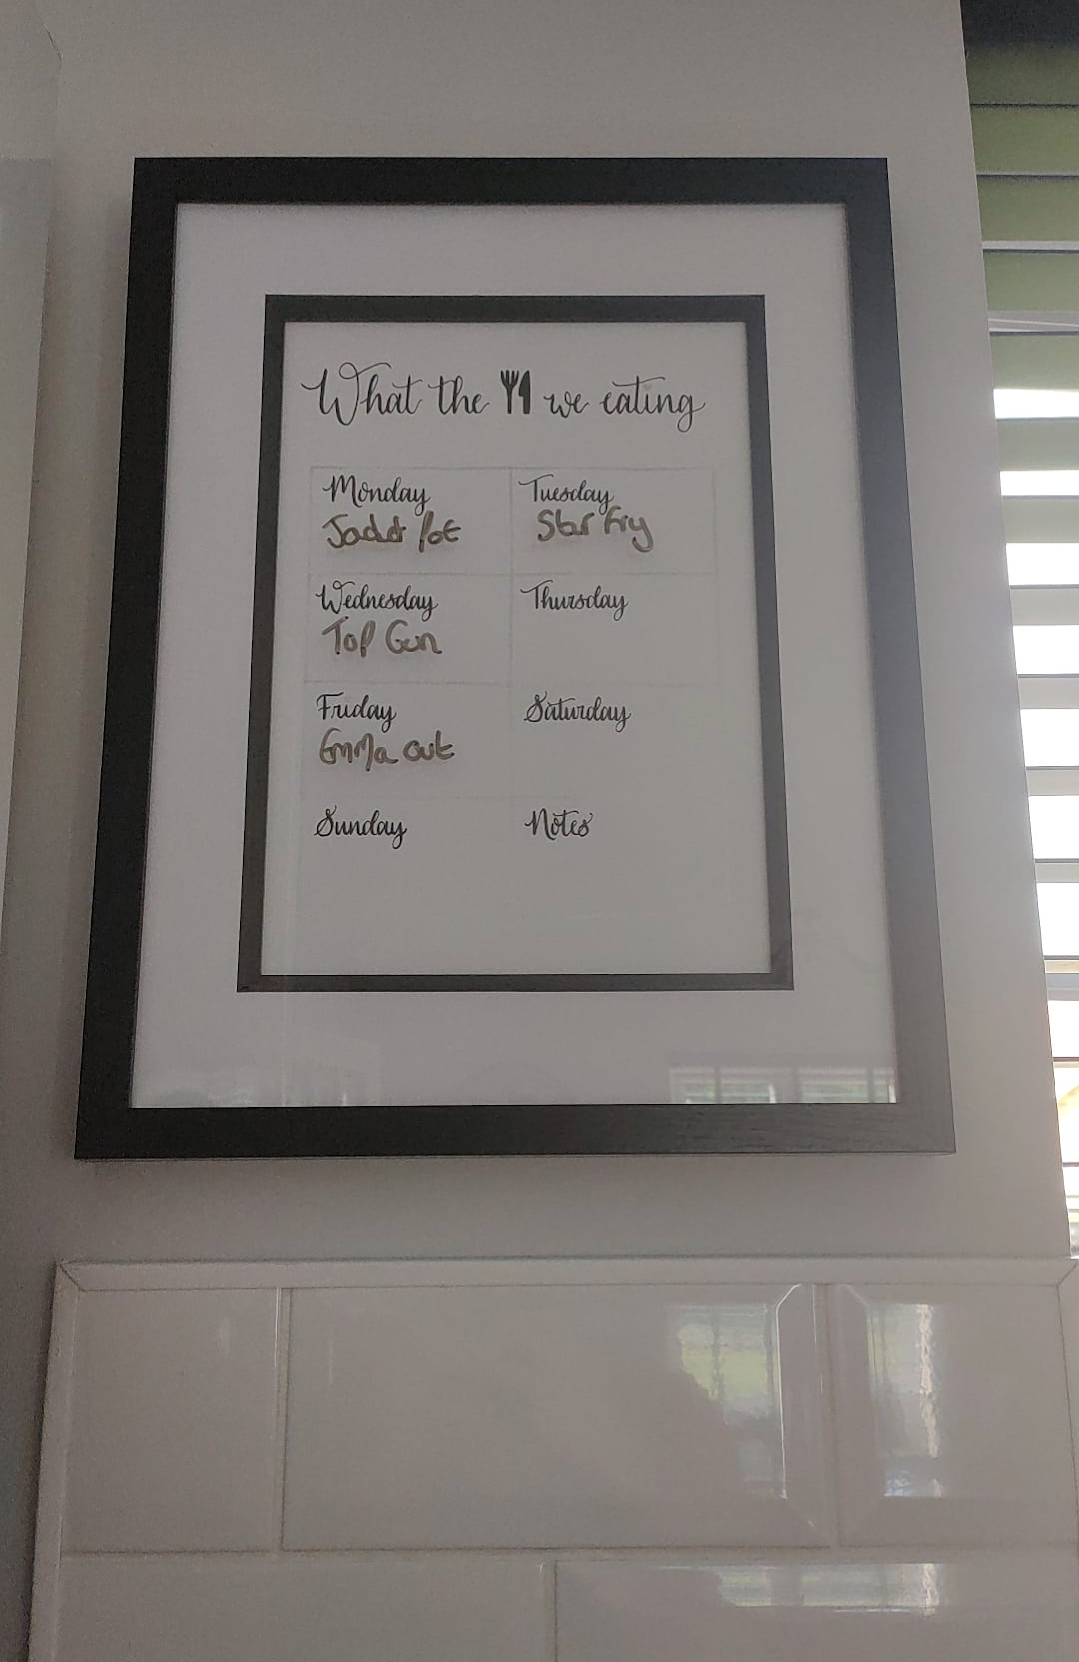 What the we eating
Monday
Jacket Pot
Tuesday
Stir Fry
Wednesday
Top Gun
Thursday
Friday
Emma out
Saturday
Sunday
Notes